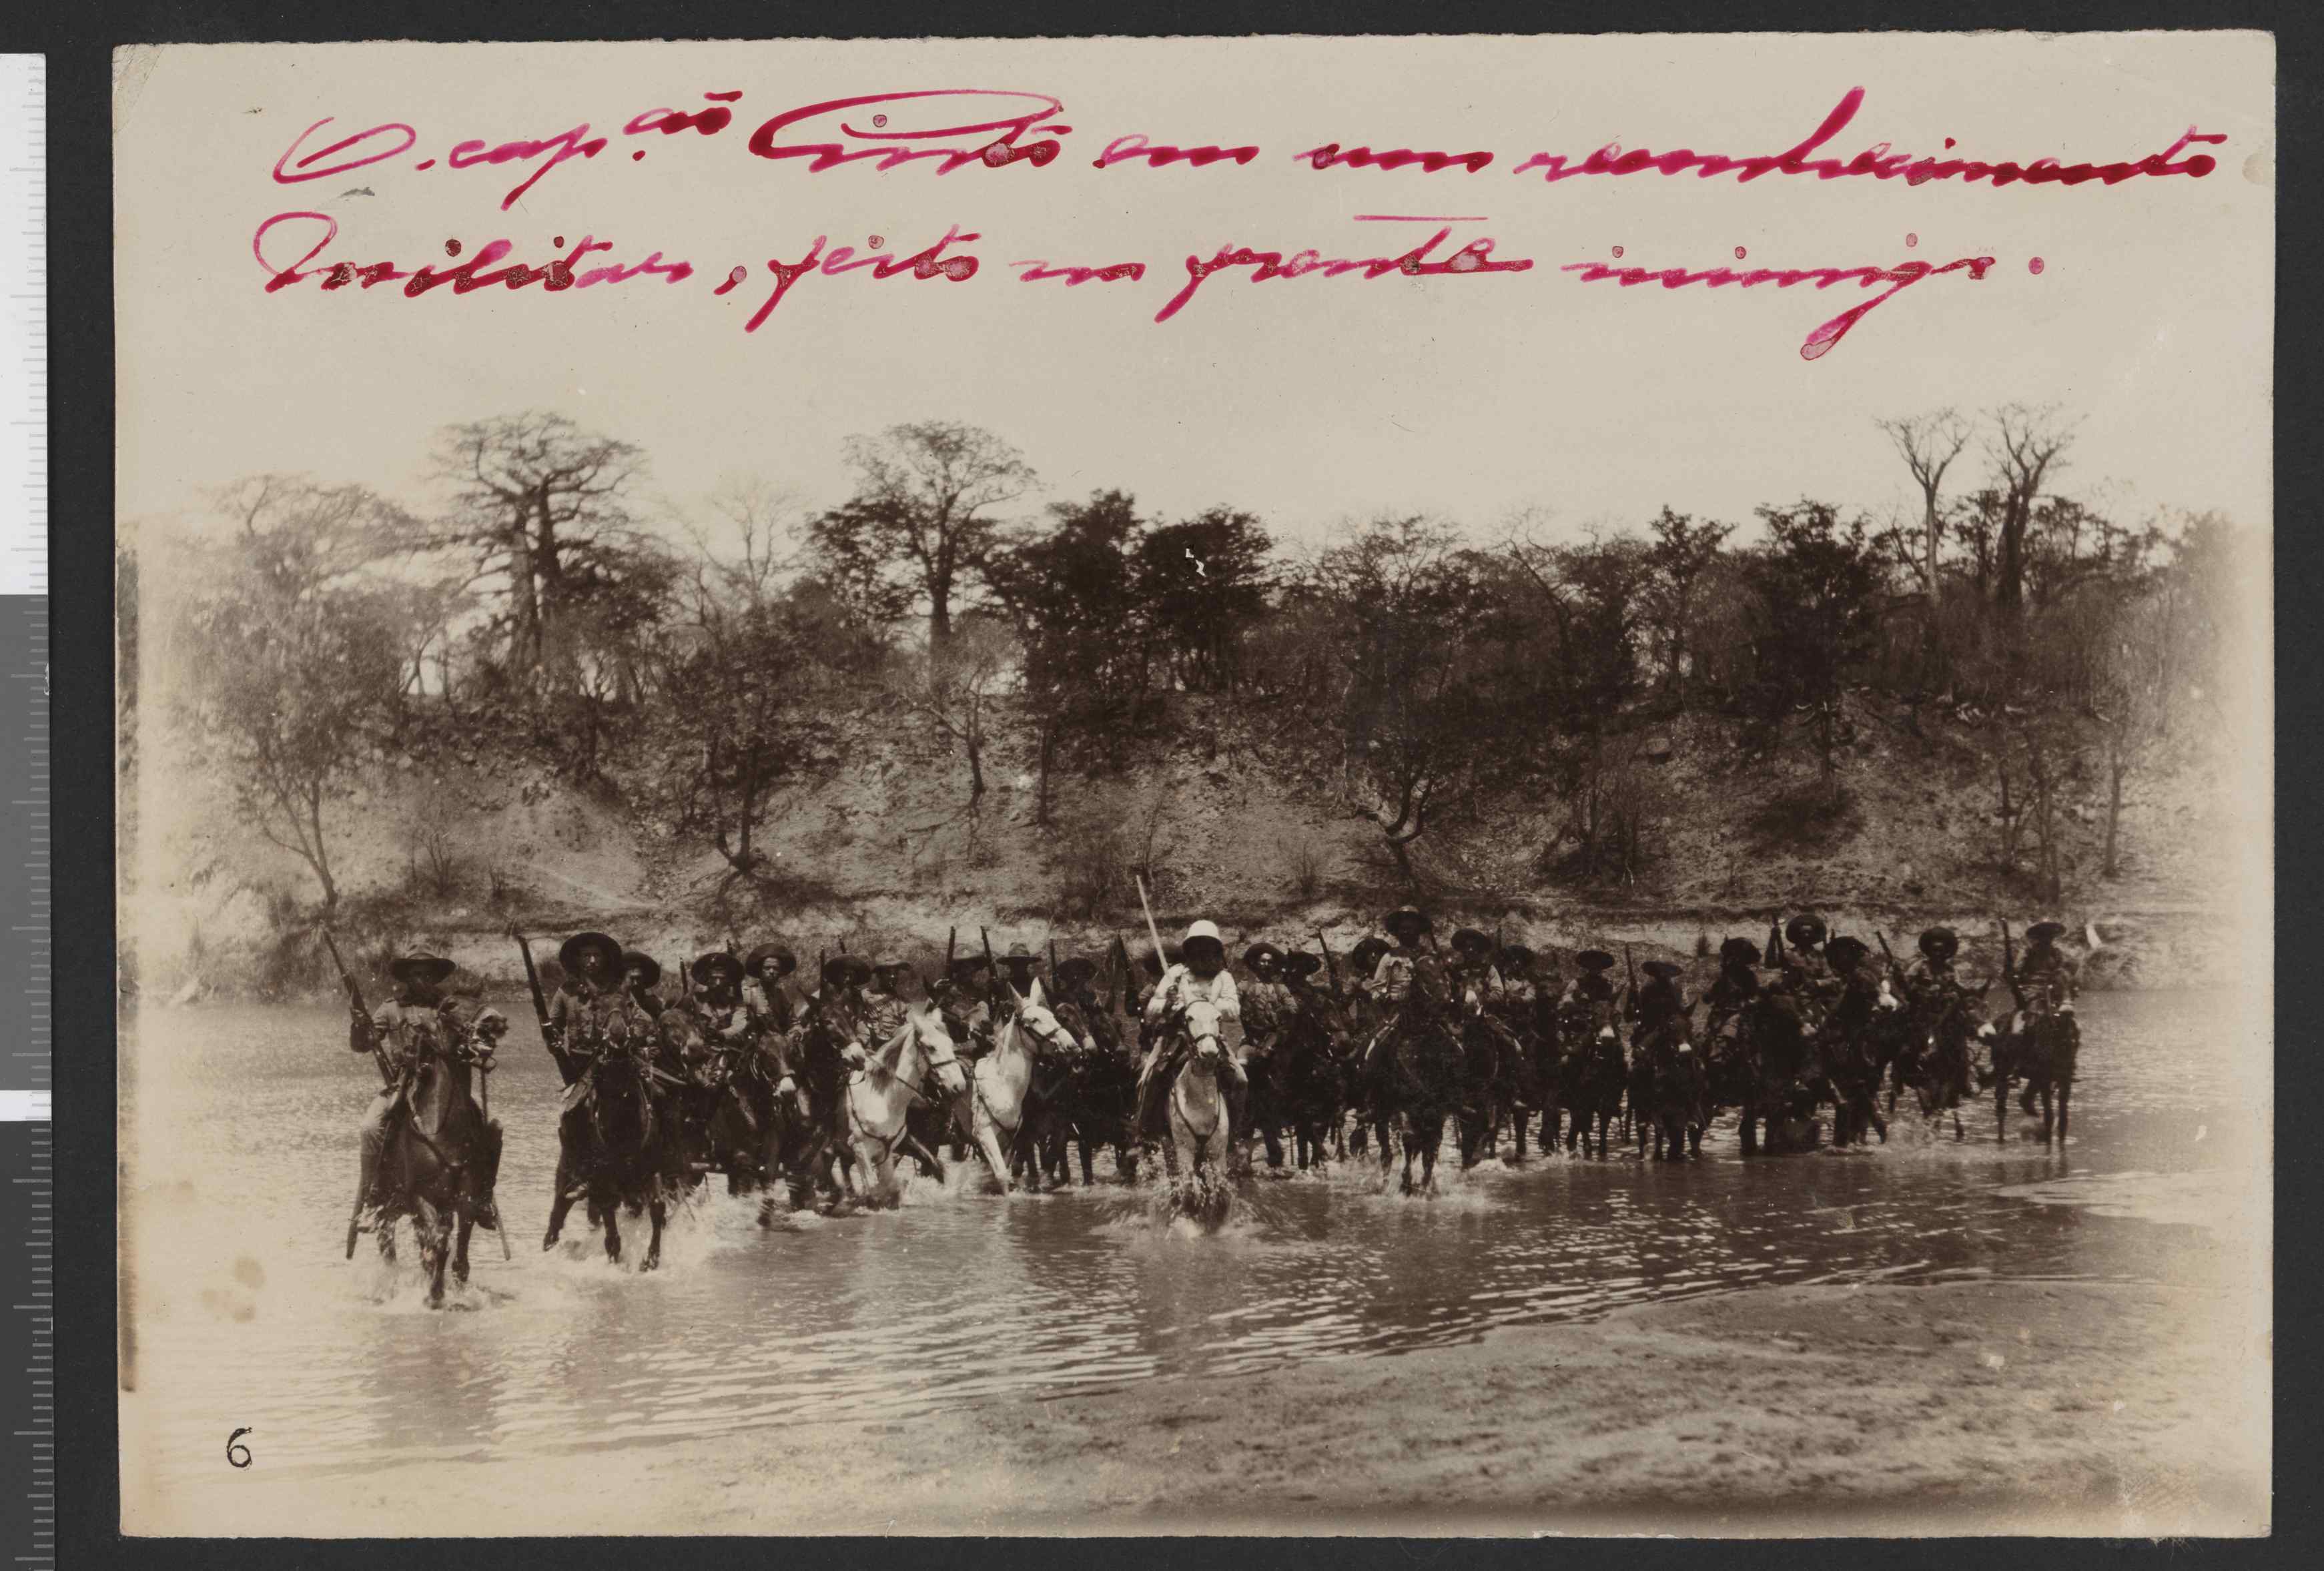 O. cap.ão Pinto em um reconhecimento
militar, feito na frente inimiga.
6